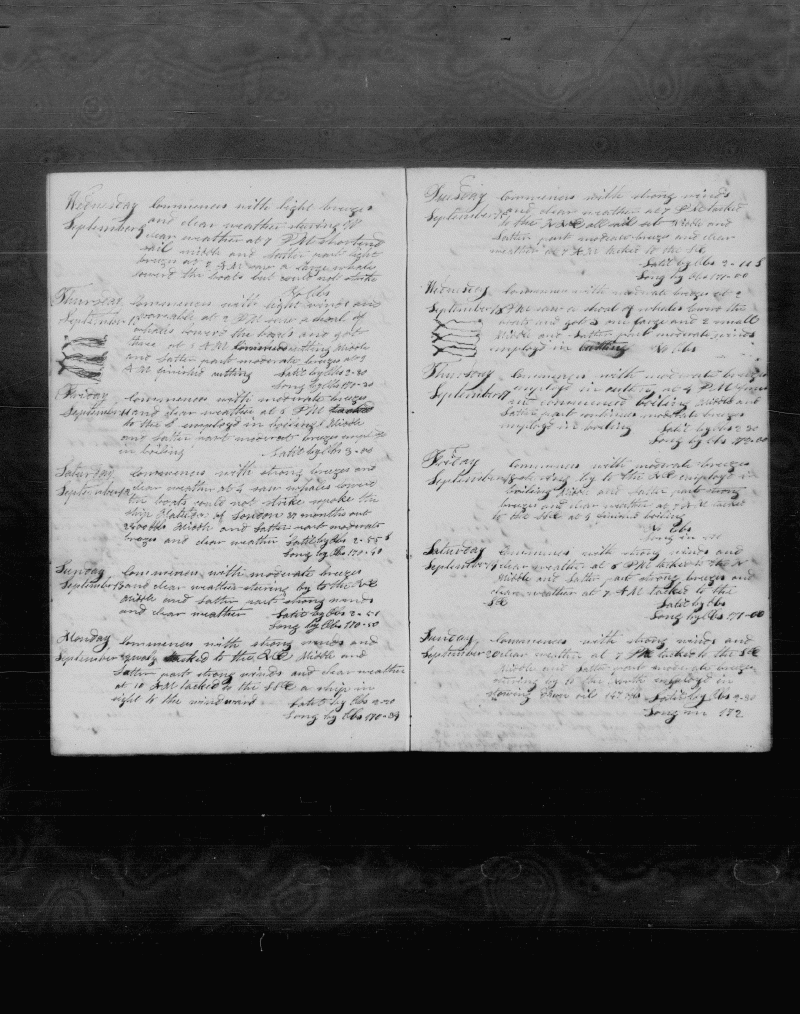 Wednesday Commences with light breezes
September 9 and clear weather
clear weather at 7 PM shortend
sail middle and latter part light
breezes at 2 A.M. saw a large whales
toward the boats but could not strike
No Obs
Thursday Commences with light winds and
September at 2 PM saw a shoal of
whales lowerd the boats and got
three at 5 A.M. cutting Middle
and latter part moderate breezes at 9
A.M. finished cutting Latit by Obs 2-30
Long by Obs 170-30
Friday Commences with moderate breezes
September 11 and clear weather at 6 PM tacked
to the S employd in boiling Middle
and latter part moderate breezes employd
in boiling Latit by Obs 3-00
Saturday Commences with strong breezes and
September 12 clear weather at 4 saw whales lowerd
the boats could not strike spoke the
ship Matilda of London 30 months out
Middle and latter part moderate
breezes and clear weather Latit by Obs 2-55 S
Long by Obs 170-40
Sunday Commences with moderate breezes
September 13 and clear weather stering by to the
Middle and latter part strong winds
and clear weather Latit by Obs 2-51
Long by Obs 170-50
Monday Commences with strong winds and
September tacked to the Middle and
latter part strong winds and clear weather
at 10 A.M. tacked to the SSE a ship in
sight to the windward Latit by Obs 2-20
Long by Obs 170-39
Tuesday Commences with strong winds
September 15 and clear weather at 7 PM tacked
to the all sail set Middle and
latter part moderate breezes and clear
weather at 7 A.M. tacked to the SE
Latit by Obs 2-10 S
Long by Obs 171-00
Wednesday Commences with moderate breezes at 2
September 16 PM saw a shoal of whales lowerd the
boats and got one large and 2 small
Middle and latter part moderate winds
employd in cutting No Obs
Thursday Commences with moderate breezes
September 17 employd in cutting at 4 PM
commenced boiling Middle and
latter part continues moderate breezes
employd in boiling Latit by Obs 2-30
Long by Obs 172-00
Friday Commences with moderate breezes
September 18 by to the employd in
boiling Middle and latter part strong
breezes and clear weather at 7 A.M. tacked
to the SSE at 9 finished boiling
No Obs
Long in
Saturday Commences with strong winds and
September 19 clear weather at 6 PM tacked to the N
Middle and latter part strong breezes and
clear weather at 7 A.M. tacked to the
SE Latit by Obs
Long by Obs 171-00
Sunday Commences with strong winds and
September 20 clear weather at 7 PM tacked to the SSE
Middle and latter part moderate breezes
by to the North employd in
stowing down oil 147 Latit by Obs 2-30
Long in 172